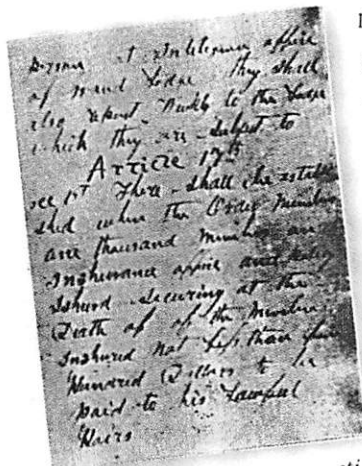 of said Lodge they shall
also report weekly to the Lodge
which they are subject to
Article 17th
sec 1st There shall be establi
shed when the Order numbers
one thousand members an
Inshureance office and
Ishued securing at the
Death of of the members
Inshured not less than five
Hundred Dollars to be
paid to his Lawful
Heirs